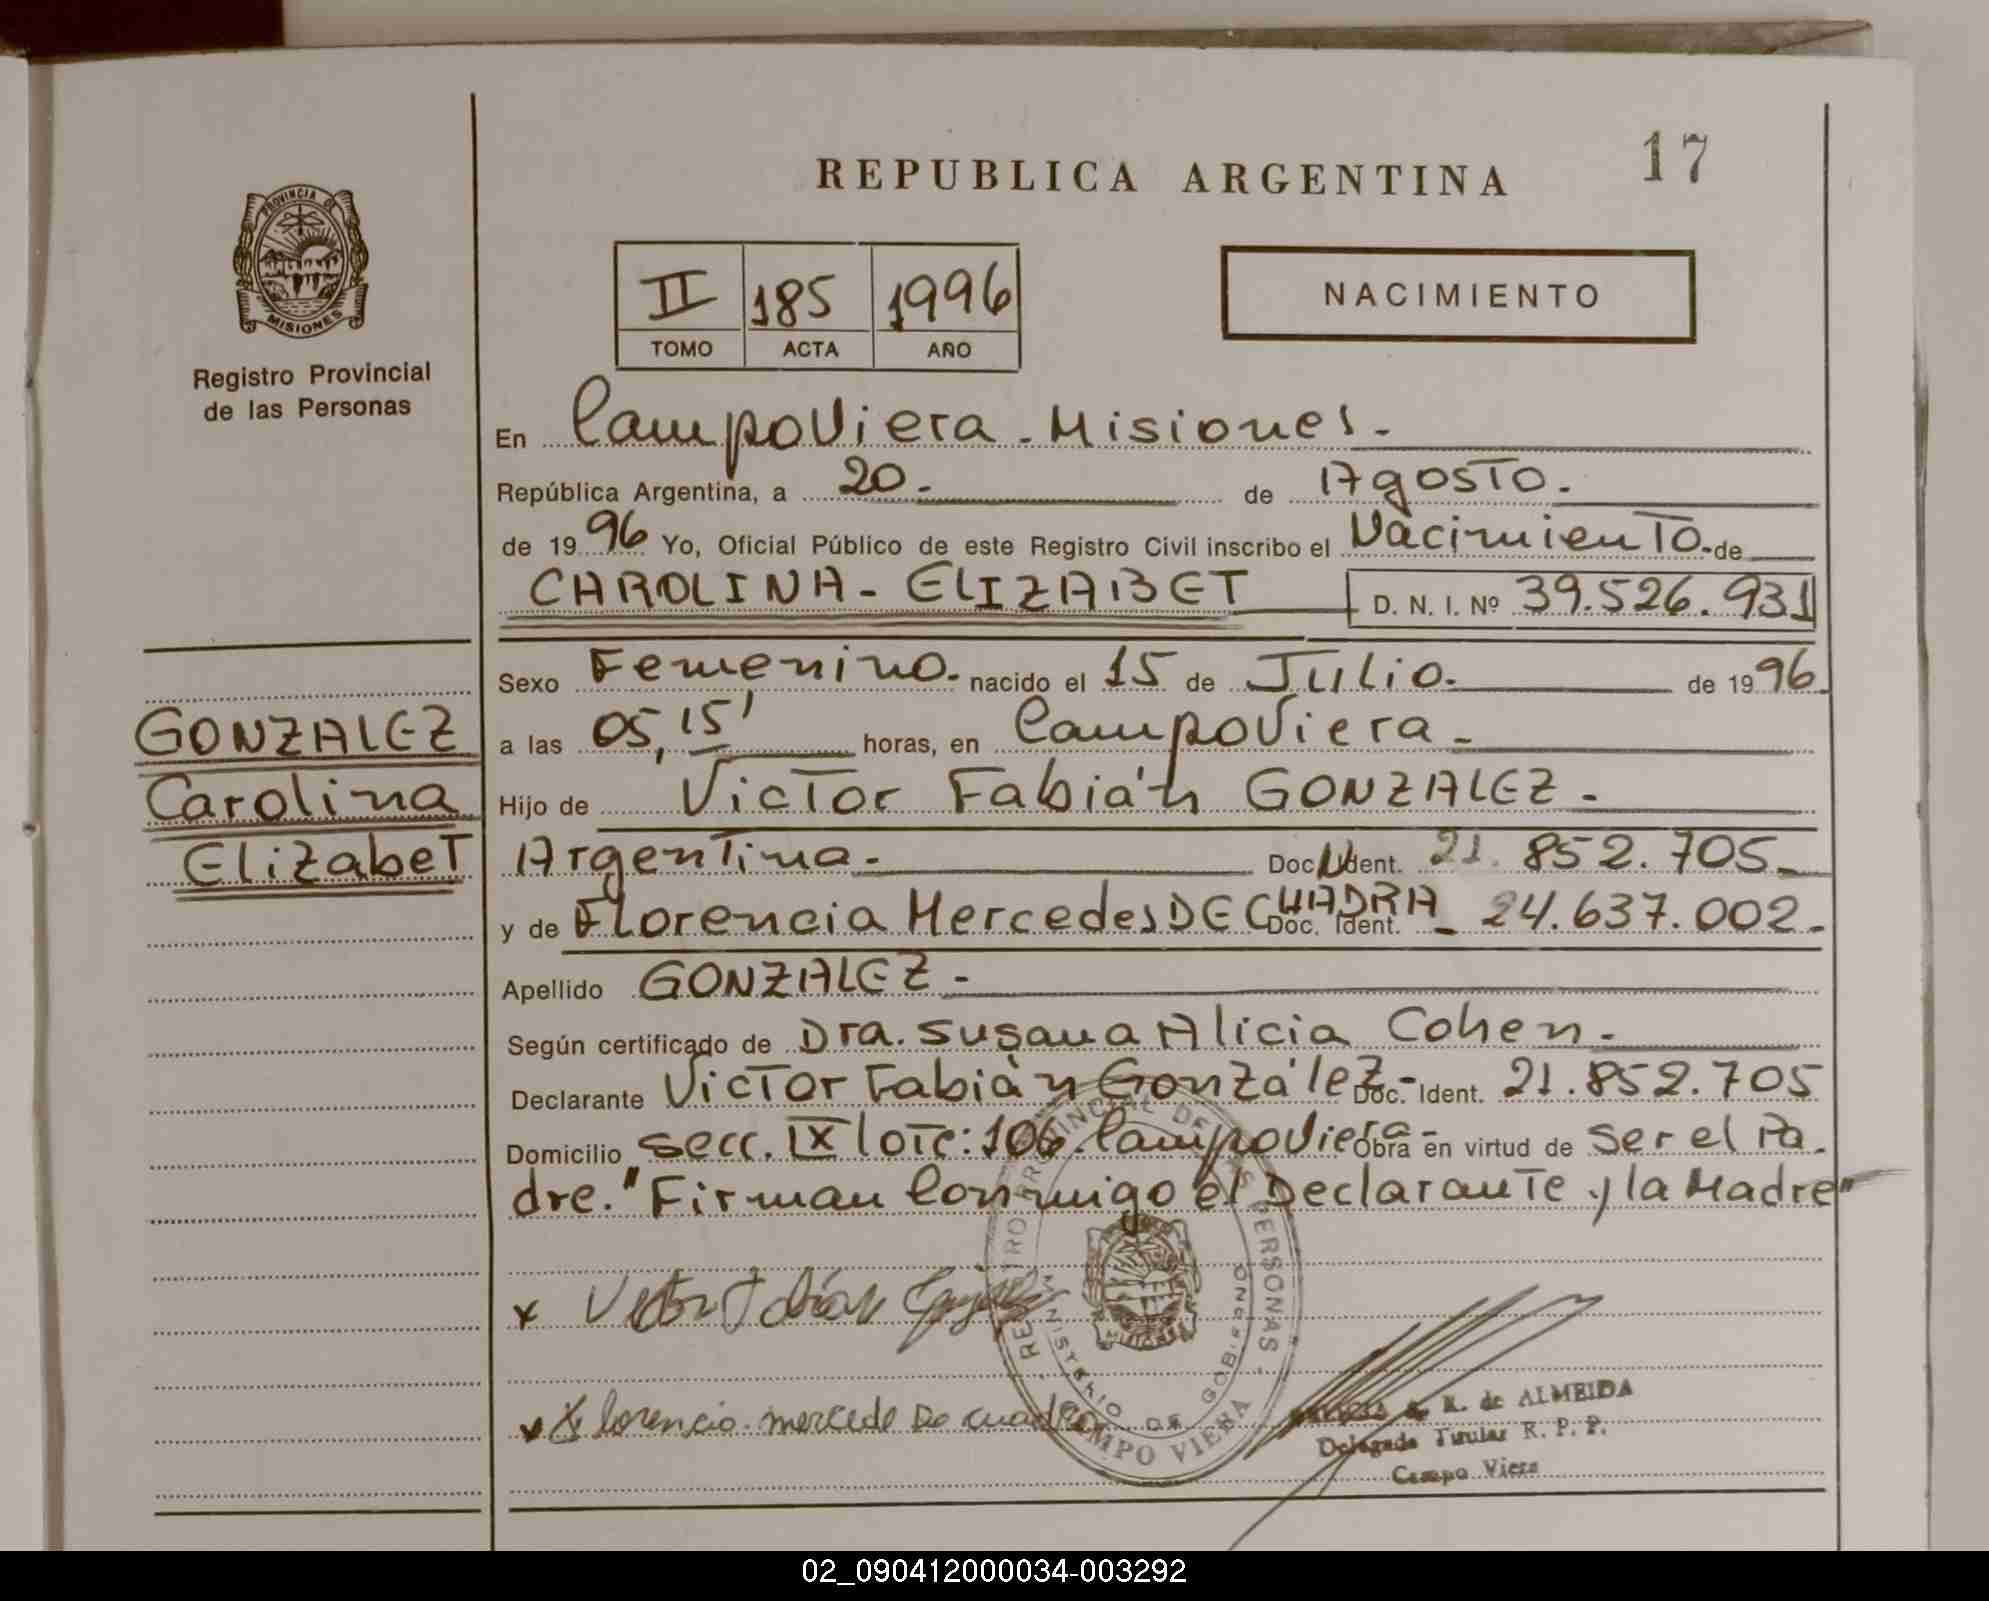 REPUBLICA ARGENTINA
17
PROVINCIA DE
MISIONES
Registro Provincial
de las Personas
II 185 1996
TOMO ACTA AÑO
NACIMIENTO
En CampoViera - Misiones.-
República Argentina, a 20.- de Agosto.
de 1996 Yo, Oficial Público de este Registro Civil inscribo el Nacimiento.- de
CAROLINA - ELIZABET D. N. I. Nº 39.526.931
GONZALEZ
Carolina
ElizabeT
Sexo Femenino.- nacido el 15 de Julio. de 1996
a las 05,15' horas, en CampoViera -
Hijo de Victor Fabián GONZALEZ -
Argentina.- Doc. Ident. 21.852.705.-
y de Florencia Mercedes DE CUADRA Doc. Ident. - 24.637.002.-
Apellido GONZALEZ -
Según certificado de Dra. Susana Alicia Cohen.-
Declarante Victor Fabián González.- Doc. Ident. 21.852.705
Domicilio secc. IX lote: 106. CampoViera - Obra en virtud de ser el Pa-
dre. "Firman Conmigo el Declarante y la Madre"
REGISTRO PROVINCIAL DE LAS PERSONAS
MINISTERIO DE GOBIERNO
MISIONES
CAMPO VIERA
x Victor Fabián González
x Florencia mercede De cuadra
K. de ALMEIDA
Delegada Titular R. P. P.
Campo Viera
02_090412000034-003292